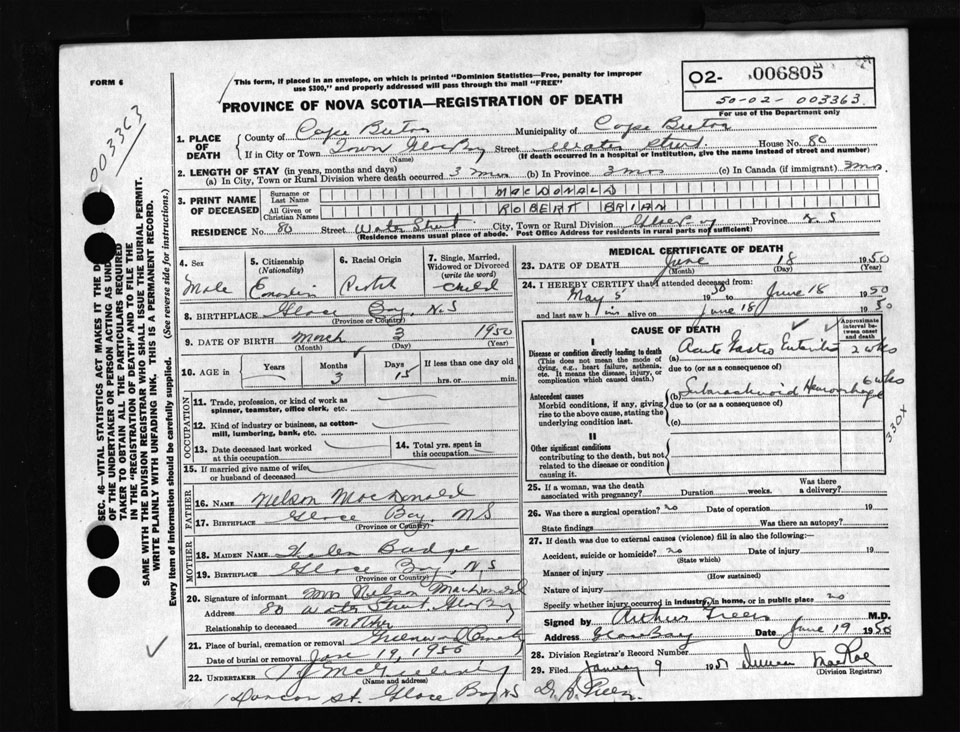 FORM 6
This form, if placed in an envelope, on which is printed "Dominion Statistics—Free, penalty for improper
use $300," and properly addressed will pass through the mail "FREE"
PROVINCE OF NOVA SCOTIA—REGISTRATION OF DEATH
02- 006805
50-02-003363
For use of the Department only
003363
SEC. 46—VITAL STATISTICS ACT MAKES IT THE D
OF THE UNDERTAKER OR PERSON ACTING AS UND
TAKER TO OBTAIN ALL THE PARTICULARS REQUIRED
IN THE "REGISTRATION OF DEATH" AND TO FILE THE
SAME WITH THE DIVISION REGISTRAR WHO SHALL ISSUE THE BURIAL PERMIT.
WRITE PLAINLY WITH UNFADING INK. THIS IS A PERMANENT RECORD.
Every item of Information should be carefully supplied. (See reverse side for instructions.)
1. PLACE OF DEATH
County of Cape Breton Municipality of Cape Breton
If in City or Town Town Glace Bay Street Water Street House No. 80
(Name) (If death occurred in a hospital or institution, give the name instead of street and number)
2. LENGTH OF STAY (in years, months and days)
(a) In City, Town or Rural Division where death occurred 3 mos (b) In Province 3 mos (c) In Canada (if immigrant) 3 mos
3. PRINT NAME OF DECEASED
Surname or Last Name MACDONALD
All Given or Christian Names ROBERT BRIAN
RESIDENCE No. 80 Street Water Street City, Town or Rural Division Glace Bay Province N.S
(Residence means usual place of abode. Post Office Address for residents in rural parts not sufficient)
4. Sex Male
5. Citizenship (Nationality) Canadian
6. Racial Origin
7. Single, Married, Widowed or Divorced (write the word) Child
8. BIRTHPLACE Glace Bay, N.S
(Province or Country)
9. DATE OF BIRTH March 3 1950
(Month) (Day) (Year)
10. AGE in Years Months 3 Days 15 If less than one day old hrs. or min.
OCCUPATION
11. Trade, profession, or kind of work as
spinner, teamster, office clerk, etc.
12. Kind of industry or business, as cotton-
mill, lumbering, bank, etc.
13. Date deceased last worked
at this occupation
14. Total yrs. spent in
this occupation
15. If married give name of wife
or husband of deceased
FATHER
16. NAME Nelson MacDonald
17. BIRTHPLACE Glace Bay, NS
(Province or Country)
MOTHER
18. MAIDEN NAME Helen Budge
19. BIRTHPLACE Glace Bay, N.S
(Province or Country)
20. Signature of informant Mrs Nelson MacDonald
Address 80 Water Street, Glace Bay
Relationship to deceased Mother
21. Place of burial, cremation or removal Greenwood Cemetery
Date of burial or removal June 19, 1950
22. UNDERTAKER
(Name and address)
St. Glace Bay NS
MEDICAL CERTIFICATE OF DEATH
23. DATE OF DEATH June 18 1950
(Month) (Day) (Year)
24. I HEREBY CERTIFY that I attended deceased from:
May 5 1950 to June 18 1950
and last saw him alive on June 18 1950
CAUSE OF DEATH
Approximate interval between onset and death
I
Disease or condition directly leading to death
(This does not mean the mode of
dying, e.g., heart failure, asthenia,
etc. It means the disease, injury, or
complication which caused death.)
(a) Acute Gastro Enteritis 2 wks
due to (or as a consequence of)
Antecedent causes
Morbid conditions, if any, giving
rise to the above cause, stating the
underlying condition last.
(b) Subarachnoid Hemorrhage 6 wks
due to (or as a consequence of)
(c)
330x
II
Other significant conditions
contributing to the death, but not
related to the disease or condition
causing it.
25. If a woman, was the death
associated with pregnancy? Duration weeks. Was there a delivery?
26. Was there a surgical operation? no Date of operation 19
State findings Was there an autopsy?
27. If death was due to external causes (violence) fill in also the following:—
Accident, suicide or homicide? no Date of injury 19
(State which)
Manner of injury
(How sustained)
Nature of injury
Specify whether injury occurred in industry, in home, or in public place no
Signed by Arthur M.D.
Address Glace Bay Date June 19 1950
28. Division Registrar's Record Number
29. Filed January 9 1951 Duncan MacRae
(Division Registrar)